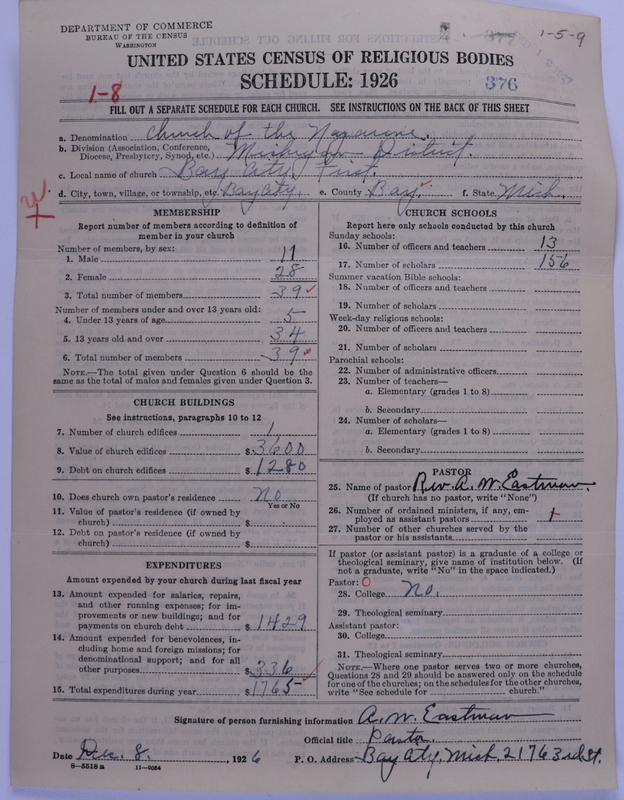 DEPARTMENT OF COMMERCE
BUREAU OF THE CENSUS
WASHINGTON
1-5-9
UNITED STATES CENSUS OF RELIGIOUS BODIES
SCHEDULE: 1926
376
1-8
FILL OUT A SEPARATE SCHEDULE FOR EACH CHURCH. SEE INSTRUCTIONS ON THE BACK OF THIS SHEET
a. Denomination Church of the Nazarene.
b. Division (Association, Conference, Diocese, Presbytery, Synod, etc.) Michigan District.
c. Local name of church Bay City First.
d. City, town, village, or township, etc. Bay City. e. County Bay. f. State Mich.
MEMBERSHIP
Report number of members according to definition of member in your church
Number of members, by sex:
1. Male 11
2. Female 28
3. Total number of members 39
Number of members under and over 13 years old:
4. Under 13 years of age 5
5. 13 years old and over 34
6. Total number of members 39
NOTE.—The total given under Question 6 should be the
same as the total of males and females given under Question 3.
CHURCH BUILDINGS
See instructions, paragraphs 10 to 12
7. Number of church edifices 1
8. Value of church edifices $3600
9. Debt on church edifices $1280
10. Does church own pastor's residence no
Yes or No
11. Value of pastor's residence (if owned by
church) $
12. Debt on pastor's residence (if owned by
church) $
EXPENDITURES
Amount expended by your church during last fiscal year
13. Amount expended for salaries, repairs,
and other running expenses; for im-
provements or new buildings; and for
payments on church debt $1429
14. Amount expended for benevolences, in-
cluding home and foreign missions; for
denominational support; and for all
other purposes $336
15. Total expenditures during year $1765
CHURCH SCHOOLS
Report here only schools conducted by this church
Sunday schools:
16. Number of officers and teachers 13
17. Number of scholars 156
Summer vacation Bible schools:
18. Number of officers and teachers
19. Number of scholars
Week-day religious schools:
20. Number of officers and teachers
21. Number of scholars
Parochial schools:
22. Number of administrative officers
23. Number of teachers—
a. Elementary (grades 1 to 8)
b. Secondary
24. Number of scholars—
a. Elementary (grades 1 to 8)
b. Secondary
PASTOR
25. Name of pastor Rev. A. W. Eastman.
(If church has no pastor, write "None")
26. Number of ordained ministers, if any, em-
ployed as assistant pastors 1
27. Number of other churches served by the
pastor or his assistants
If pastor (or assistant pastor) is a graduate of a college or
theological seminary, give name of institution below. (If
not a graduate, write "No" in the space indicated.)
Pastor: O
28. College No.
29. Theological seminary
Assistant pastor:
30. College
31. Theological seminary
NOTE.—Where one pastor serves two or more churches,
Questions 28 and 29 should be answered only on the schedule
for one of the churches; on the schedules for the other churches,
write "See schedule for church."
Signature of person furnishing information A. W. Eastman
Official title Pastor.
Date Dec. 8, 1926 P. O. Address Bay City, Mich. 2176 3rd St.
8—5518 a 11—9054